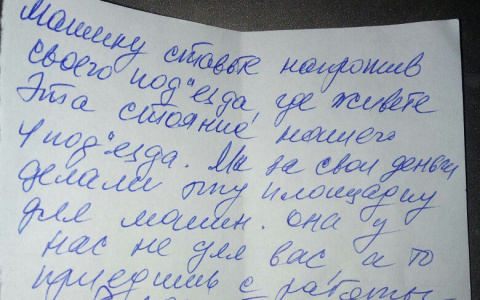 Машину ставьте напротив
своего под"езда, где живете
Эта стояние нашего
4 под"езда. Мы за свои деньги
делали эту площадку
для машин. она у
нас не для вас а то
приедешь с работы